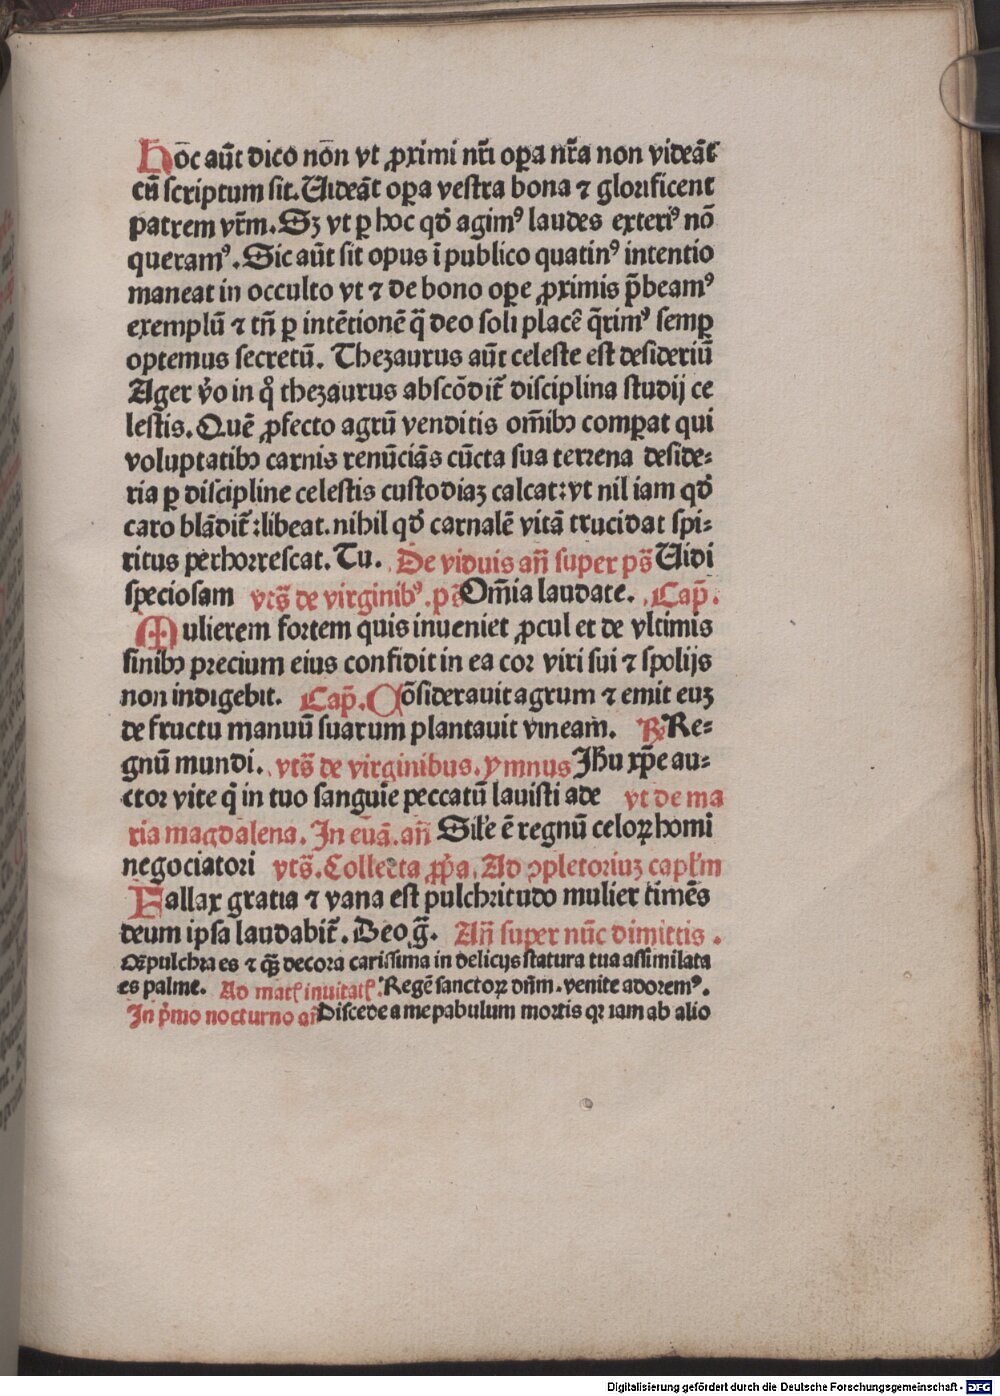 Hōc aūt dico nōn vt ꝓximi nr̄i oꝑa nr̄a non videāt
cū scriptum sit. Uideāt oꝑa vestra bona ⁊ glorificent
patrem vr̄m. Sꝫ vt ꝑ hoc qd̄ agimꝰ laudes exteriꝰ nō
queramꝰ. Sic aūt sit opus ī publico quatinꝰ intentio
maneat in occulto vt ⁊ de bono oꝑe ꝓximis p̄beamꝰ
exemplū ⁊ tn̄ ꝑ intētionē q̄ deo soli placē q̄rimꝰ semꝑ
optemus secretū. Thezaurus aūt celeste est desideriū
Ager v̄o in qͦ thezaurus abscōdit̄ disciplina studij ce
lestis. Quē ꝓfecto agrū venditis om̄ibꝫ comꝑat qui
voluptatibꝫ carnis renūciās cūcta sua terrena deside⸗
ria ꝑ discipline celestis custodiaꝫ calcat: vt nil iam qd̄
caro blādit̄: libeat. nihil qd̄ carnalē vitā trucidat spi⸗
ritus perhorrescat. Tu. De viduis an̄ super ps̄ Uidi
speciosam vts̄ de virginibꝰ. ps̄ Om̄ia laudate. Cap̄.
Mulierem fortem quis inueniet ꝓcul et de vltimis
finibꝫ precium eius confidit in ea cor viri sui ⁊ spolijs
non indigebit. Cap̄. Cōsiderauit agrum ⁊ emit euꝫ
de fructu manuū suarum plantauit vineam. ℟ Re⸗
gnū mundi. vts̄ de virginibus. ymnus Jhu xp̄e au⸗
ctor vite q̄ in tuo sanguie peccatū lauisti ade vt de ma
ria magdalena. In euā. an̄ Sil'e ē regnū celoꝝ homi
negociatori vts̄. Collecta ꝓp̄a. Ad ꝯpletoriuꝫ capl'm
Fallax gratia ⁊ vana est pulchritudo mulier timēs
deum ipsa laudabit̄. Deo ḡ. An̄ super nūc dimittis.
Qꝫ pulchra es ⁊ qꝫ decora carissima in delicijs statura tua assimilata
es palme. Ad mat̄ inuitat̄ Regē sanctoꝝ dn̄m. venite adoremꝰ.
In p̄mo nocturno an̄ Discede a me pabulum mortis qꝛ iam ab alio
Digitalisierung gefördert durch die Deutsche Forschungsgemeinschaft - DFG